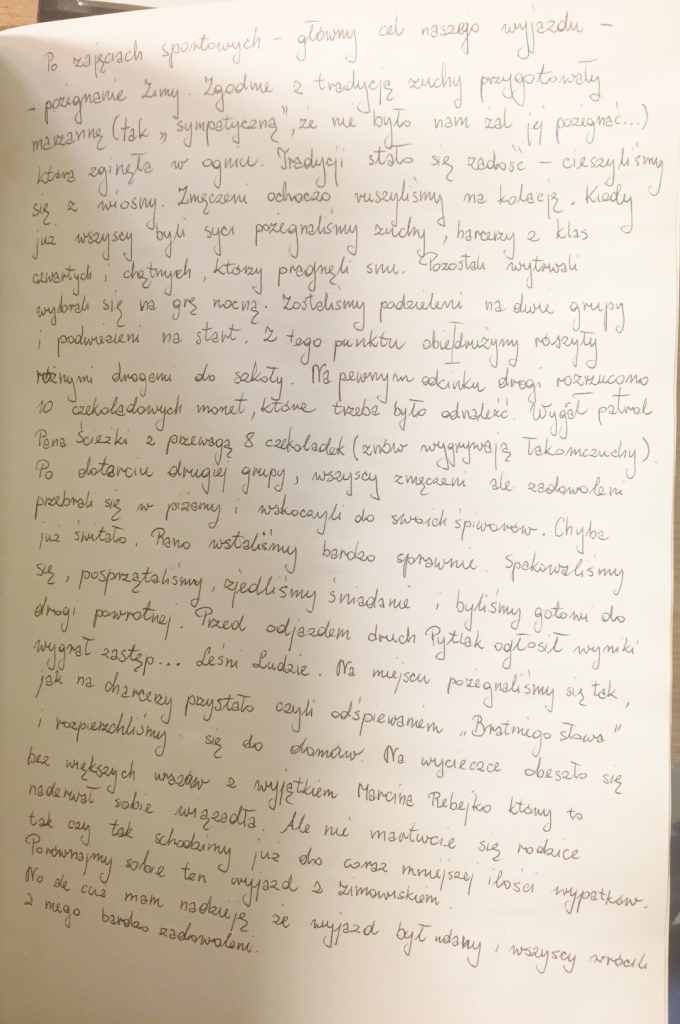 Po zajęciach sportowych – główny cel naszego wyjazdu –
– pożegnanie zimy. Zgodnie z tradycją zuchy przygotowały
marzannę (tak „sympatyczną", że nie było nam żal jej pożegnać...)
która zginęła w ogniu. Tradycji stało się zadość – cieszyliśmy
się z wiosny. Zmęczeni ochoczo ruszyliśmy na kolację. Kiedy
już wszyscy byli syci pożegnaliśmy zuchy, harcerzy z klas
czwartych i chętnych, którzy pragnęli snu. Pozostali wytrwali
wybrali się na grę nocną. Zostaliśmy podzieleni na dwie grupy
i podwiezieni na start. Z tego punktu obie drużyny ruszyły
różnymi drogami do szkoły. Na pewnym odcinku drogi rozrzucono
10 czekoladowych monet, które trzeba było odnaleźć. Wygrał patrol
Pana Ścieżki z przewagą 8 czekoladek (znów wygrywają łakomczuchy).
Po dotarciu drugiej grupy, wszyscy zmęczeni ale zadowoleni
przebrali się w piżamy i wskoczyli do swoich śpiworów. Chyba
już świtało. Rano wstaliśmy bardzo sprawnie. Spakowaliśmy
się, posprzątaliśmy, zjedliśmy śniadanie i byliśmy gotowi do
drogi powrotnej. Przed odjazdem druh Pytlak ogłosił wyniki
wygrał zastęp... Leśni Ludzie. Na miejscu pożegnaliśmy się tak,
jak na charcerzy przystało czyli odśpiewaniem „Bratniego słowa"
i rozpierzchliśmy się do domów. Na wycieczce obeszło się
bez większych urazów z wyjątkiem Marcina Rebejko który to
naderwał sobie wiązadła. Ale nie martwcie się rodzice
tak czy tak schodzimy już do coraz mniejszej ilości wypadków.
Porównajmy sobie ten wyjazd z zimowiskiem.
No de cuż mam nadzieję że wyjazd był udany i wszyscy wrócili
z niego bardzo zadowoleni.